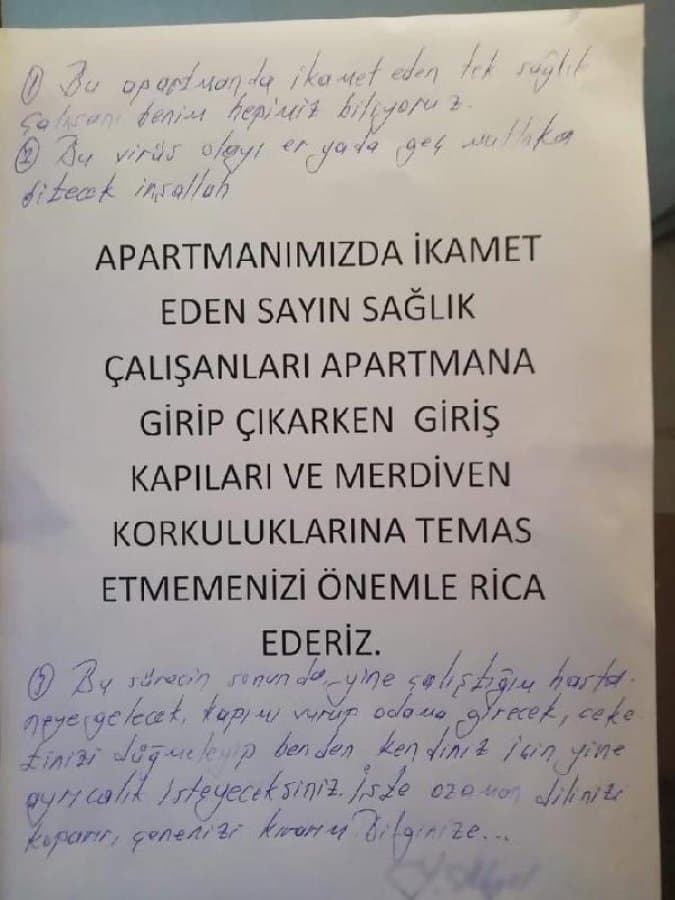 ① Bu apartmanda ikamet eden tek sağlık
çalışanı benim hepimiz biliyoruz.
② Bu virüs olayı er yada geç mutlaka
bitecek inşallah
APARTMANIMIZDA İKAMET
EDEN SAYIN SAĞLIK
ÇALIŞANLARI APARTMANA
GİRİP ÇIKARKEN GİRİŞ
KAPILARI VE MERDİVEN
KORKULUKLARINA TEMAS
ETMEMENİZİ ÖNEMLE RİCA
EDERİZ.
③ Bu sürecin sonunda yine çalıştığım hasta-
neye gelecek, kapımı vurup odama girecek, ceke-
tinizi düğmeleyip benden kendiniz için yine
ayrıcalık isteyeceksiniz. İşte ozaman dilinizi
koparır, çenenizi kırarım Bilginize...